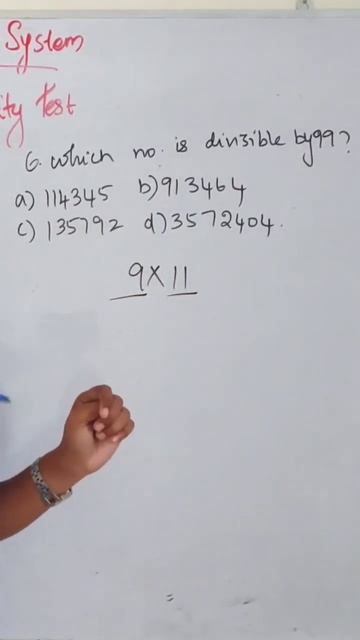 System
ity Test
6. which no. is divisible by 99?
a) 114345 b) 913464
c) 135792 d) 3572404.
9 X 11